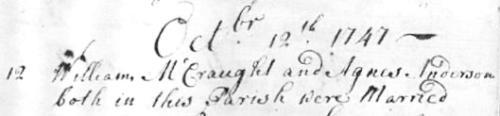 Octbr 12th 1747 —
12 William McCraught and Agnes Anderson
both in this Parish were Married